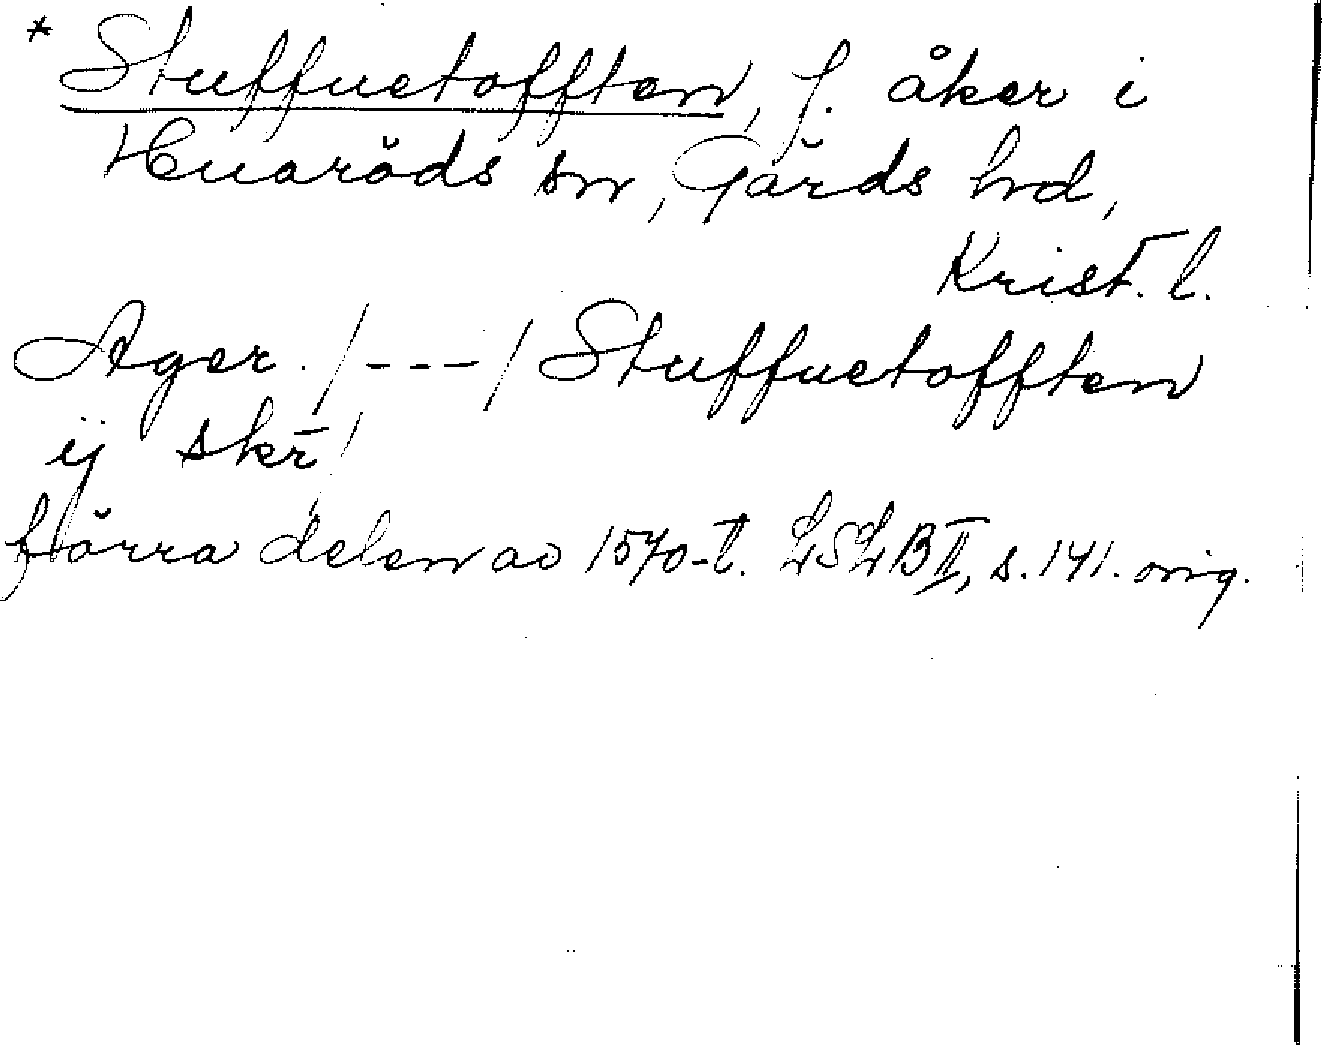 * Stuffuetofften, f. åker i
Huaröds sn, Gärds hd,
Krist. l.
Ager /---/ Stuffuetofften
ij skr̄
förra delen av 1570-t. LSLB II, s. 141. orig.